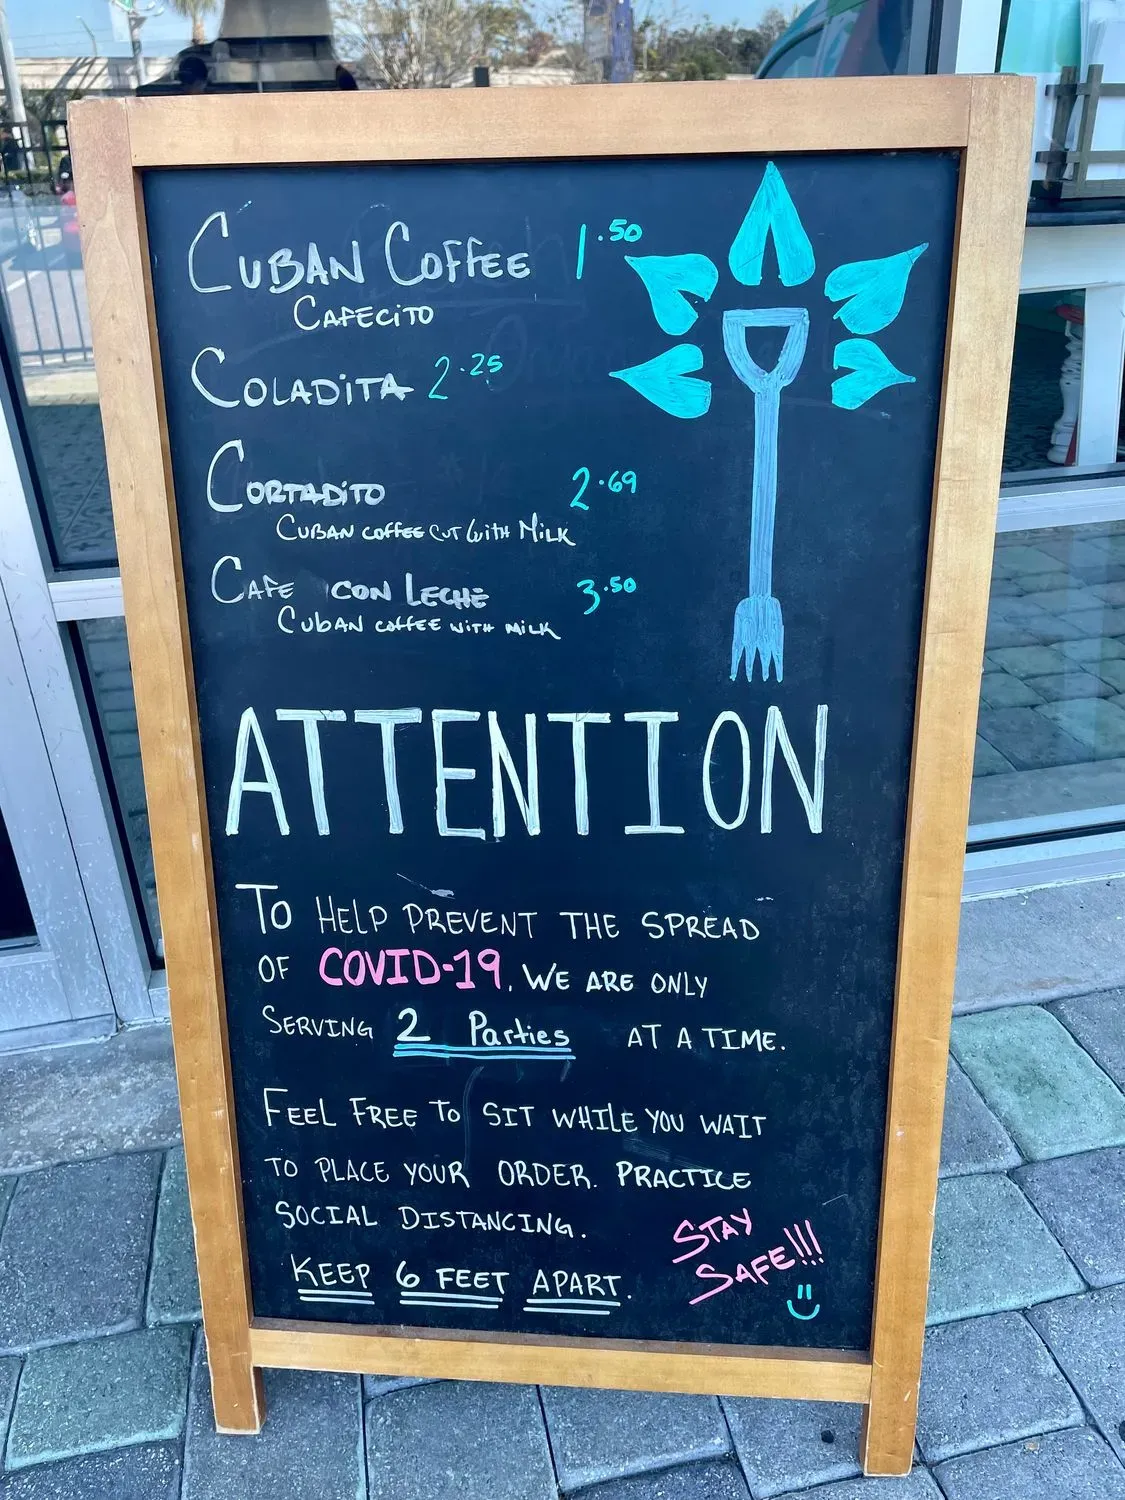 CUBAN COFFEE 1.50
CAFECITO
COLADITA 2.25
CORTADITO 2.69
CUBAN COFFEE CUT WITH MILK
CAFE CON LECHE 3.50
CUBAN COFFEE WITH MILK
ATTENTION
TO HELP PREVENT THE SPREAD
OF COVID-19, WE ARE ONLY
SERVING 2 Parties AT A TIME.
FEEL FREE TO SIT WHILE YOU WAIT
TO PLACE YOUR ORDER. PRACTICE
SOCIAL DISTANCING.
KEEP 6 FEET APART.
STAY
SAFE!!!